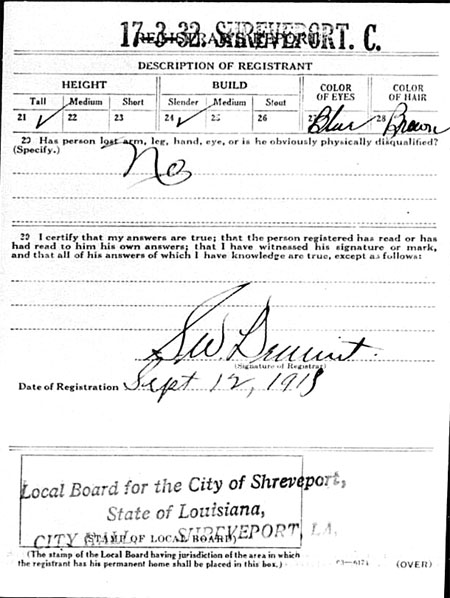 17-3-32. SHREVEPORT. C.
REGISTRAR'S REPORT
DESCRIPTION OF REGISTRANT
HEIGHT BUILD COLOR OF EYES COLOR OF HAIR
Tall Medium Short Slender Medium Stout
21 ✓ 22 23 24 ✓ 25 26 27 Blue 28 Brown
29 Has person lost arm, leg, hand, eye, or is he obviously physically disqualified?
(Specify.) No
30 I certify that my answers are true; that the person registered has read or has
had read to him his own answers; that I have witnessed his signature or mark,
and that all of his answers of which I have knowledge are true, except as follows:
(Signature of Registrar)
Date of Registration Sept 12, 1918
Local Board for the City of Shreveport,
State of Louisiana,
CITY HALL SHREVEPORT, LA.
(STAMP OF LOCAL BOARD)
(The stamp of the Local Board having jurisdiction of the area in which
the registrant has his permanent home shall be placed in this box.)
03—6171 (OVER)